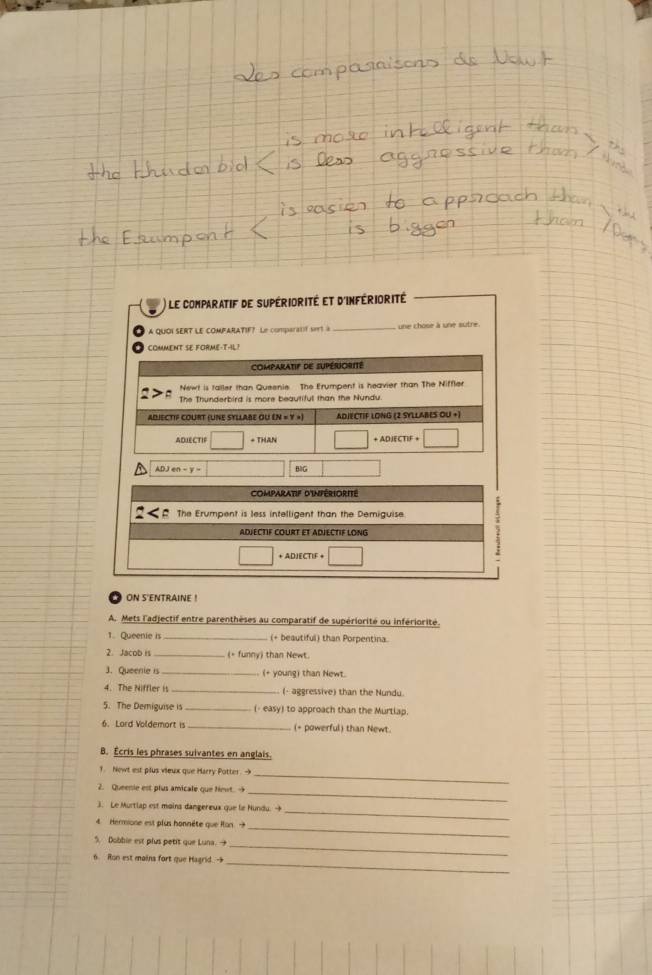 Les comparaisons de Newt
is more intelligent than
the thuderbid < is less aggressive than > the
is easier to approach than
the Erumpent < is bigger than > the
LE COMPARATIF DE SUPÉRIORITÉ ET D'INFÉRIORITÉ
A QUOI SERT LE COMPARATIF? Le comparatif sert à ____________ une chose à une autre.
COMMENT SE FORME-T-IL?
COMPARATIF DE SUPÉRIORITÉ
Newt is taller than Queenie. The Erumpent is heavier than The Niffler.
The Thunderbird is more beautiful than the Nundu.
ADJECTIF COURT (UNE SYLLABE OU EN « Y ») ADJECTIF LONG (2 SYLLABES OU +)
ADJECTIF + THAN + ADJECTIF +
ADJ en - y - BIG
COMPARATIF D'INFÉRIORITÉ
The Erumpent is less intelligent than the Demiguise.
ADJECTIF COURT ET ADJECTIF LONG
+ ADJECTIF +
ON S'ENTRAINE !
A. Mets l'adjectif entre parenthèses au comparatif de supériorité ou infériorité.
1. Queenie is ____________ (+ beautiful) than Porpentina.
2. Jacob is ____________ (+ funny) than Newt.
3. Queenie is ____________ (+ young) than Newt.
4. The Niffler is ____________ (- aggressive) than the Nundu.
5. The Demiguise is ____________ (- easy) to approach than the Murtlap.
6. Lord Voldemort is ____________ (+ powerful) than Newt.
B. Écris les phrases suivantes en anglais.
1. Newt est plus vieux que Harry Potter. → ____________
2. Queenie est plus amicale que Newt. → ____________
3. Le Murtlap est moins dangereux que le Nundu. → ____________
4. Hermione est plus honnête que Ron. → ____________
5. Dobbie est plus petit que Luna. → ____________
6. Ron est moins fort que Hagrid. → ____________